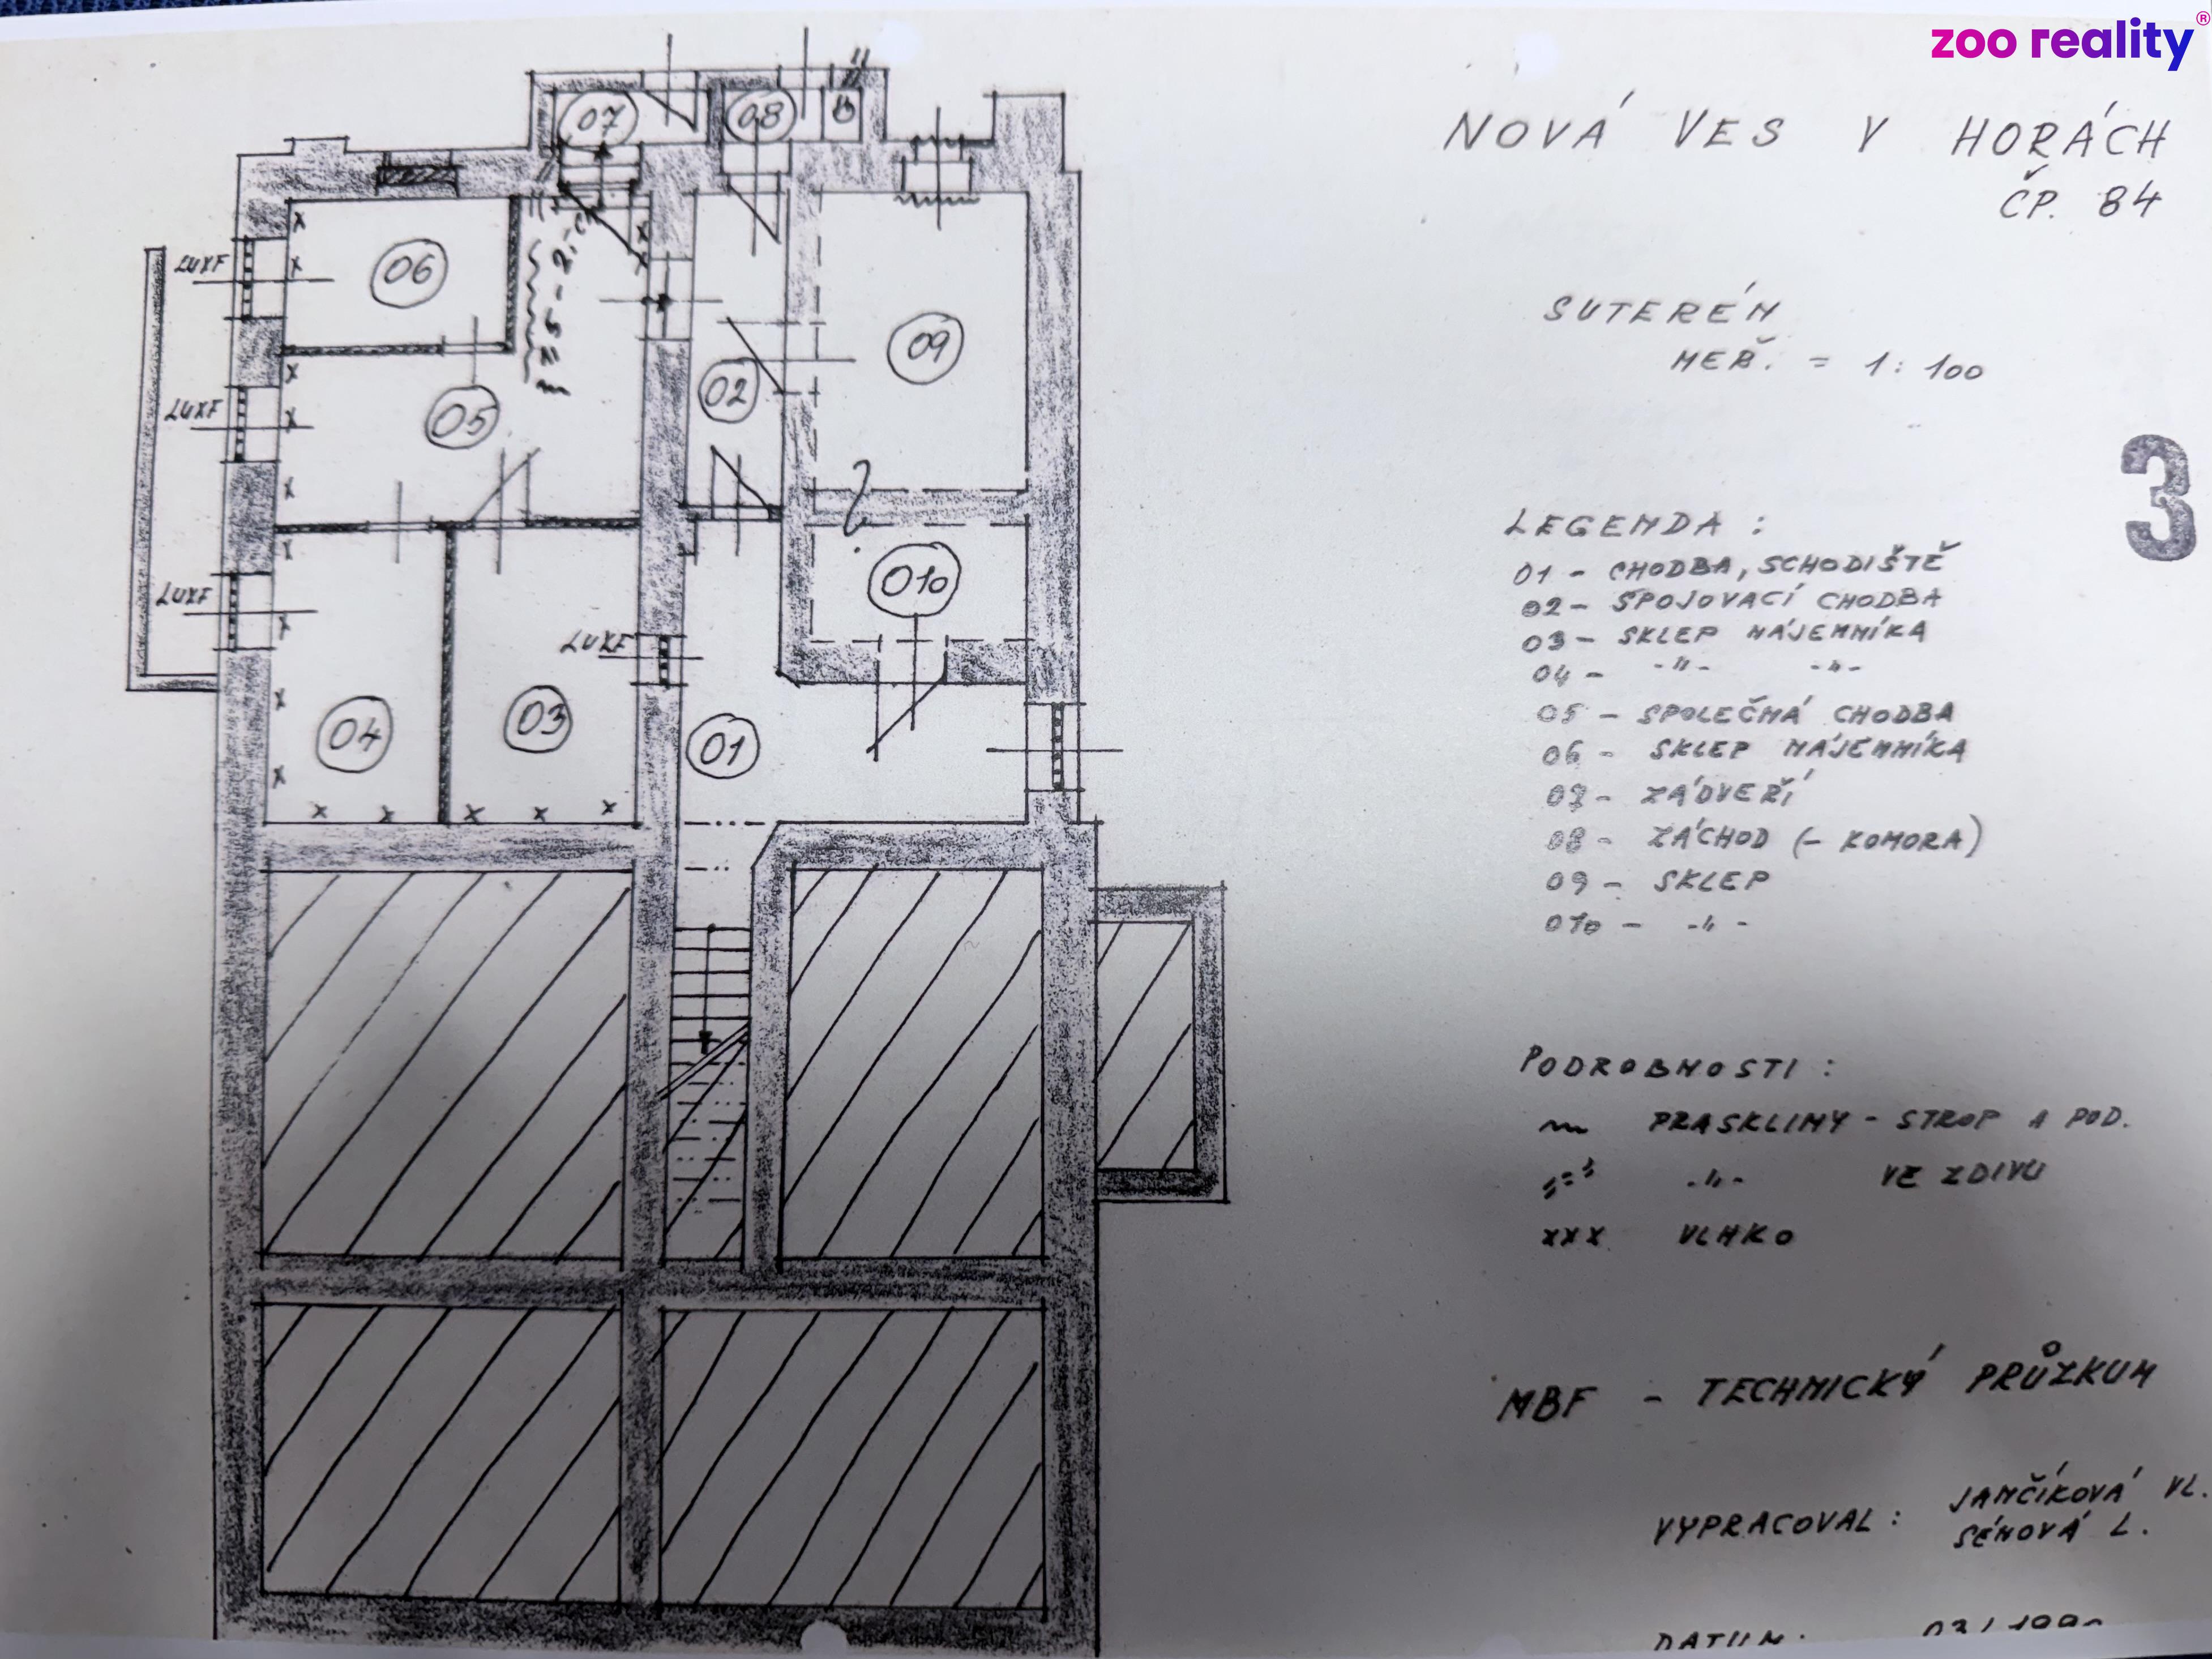 zoo reality®
NOVÁ VES V HORÁCH
ČP. 84
SUTERÉN
MEŘ. = 1:100
3
LEGENDA :
01 - CHODBA, SCHODIŠTĚ
02 - SPOJOVACÍ CHODBA
03 - SKLEP NÁJEMNÍKA
04 - -"- -"-
05 - SPOLEČNÁ CHODBA
06 - SKLEP NÁJEMNÍKA
07 - ZÁDVEŘÍ
08 - ZÁCHOD (- KOMORA)
09 - SKLEP
010 - -"-
PODROBNOSTI :
PRASKLINY - STROP A POD.
-"- VE ZDIVU
xxx VLHKO
MBF - TECHNICKÝ PRŮZKUM
VYPRACOVAL : JANČÍKOVÁ VL.
SÉNOVÁ L.
DATUM :
07
08
06
LUXF
09
02
LUXF
05
010
LUXF
LUXF
04
03
01